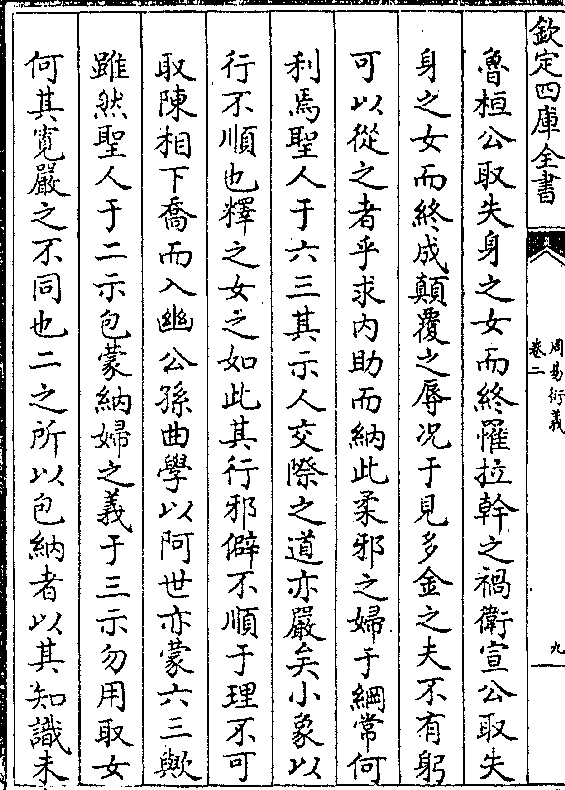 欽定四庫全書
周易衍義
卷二
九
魯桓公取失身之女而終罹拉幹之禍衛宣公取失
身之女而終成顛覆之辱況于見多金之夫不有躬
可以從之者乎求内助而納此柔邪之婦于綱常何
利焉聖人于六三其示人交際之道亦嚴矣小象以
行不順也釋之女之如此其行邪僻不順于理不可
取陳相下喬而入幽公孫曲學以阿世亦蒙六三歟
雖然聖人于二示包蒙納婦之義于三示勿用取女
何其寛嚴之不同也二之所以包納者以其知識未